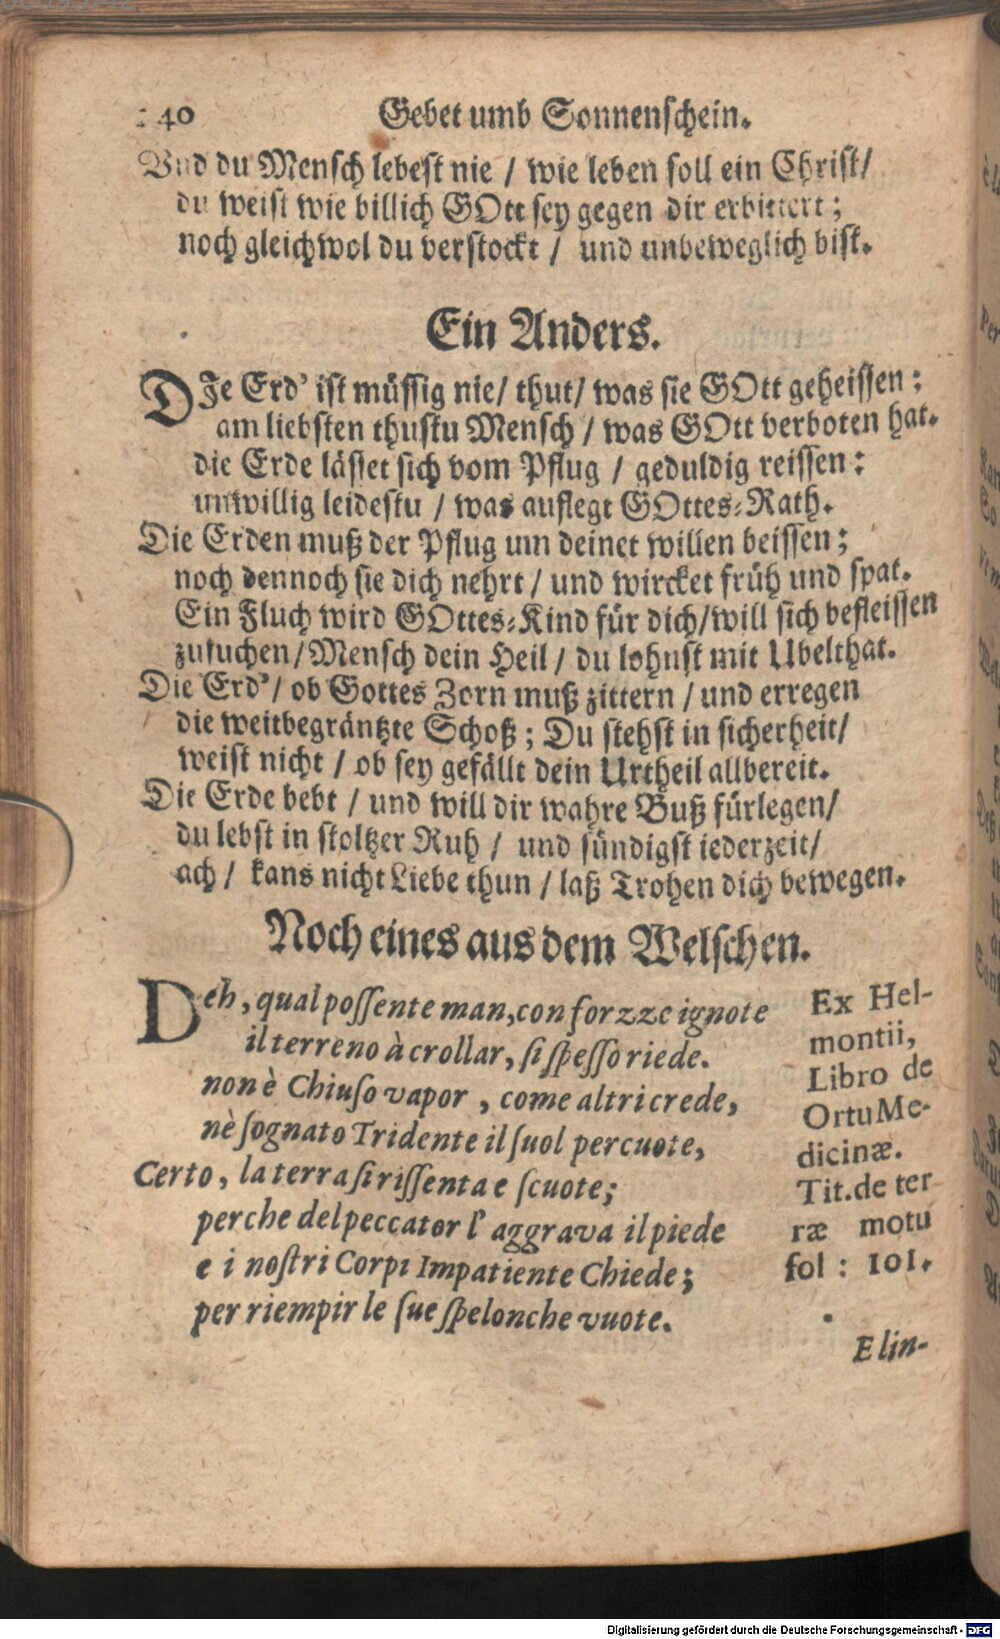 140 Gebet umb Sonnenschein.
Und du Mensch lebest nie / wie leben soll ein Christ/
du weist wie billich GOtt sey gegen dir erbittert;
noch gleichwol du verstockt / und unbeweglich bist.
Ein Anders.
DJe Erd' ist müssig nie/ thut/ was sie GOtt geheissen:
am liebsten thustu Mensch / was GOtt verboten hat.
die Erde lässet sich vom Pflug / geduldig reissen:
unwillig leidestu / was auflegt GOttes-Rath.
Die Erden muß der Pflug um deinet willen beissen;
noch dennoch sie dich nehrt / und wircket früh und spat.
Ein Fluch wird GOttes-Kind für dich/will sich befleissen
zusuchen/Mensch dein Heil / du lohnst mit Ubelthat.
Die Erd'/ ob Gottes Zorn muß zittern / und erregen
die weitbegräntzte Schoß; Du stehst in sicherheit/
weist nicht / ob sey gefällt dein Urtheil allbereit.
Die Erde bebt / und will dir wahre Buß fürlegen/
du lebst in stoltzer Ruh / und sündigst iederzeit/
ach / kans nicht Liebe thun / laß Trohen dich bewegen.
Noch eines aus dem Welschen.
Deh, qual possente man, con forzze ignote
il terreno à crollar, si spesso riede.
non è Chiuso vapor, come altri crede,
nè sognato Tridente il suol percuote,
Certo, la terra si rissenta e scuote;
perche del peccator l' aggrava il piede
e i nostri Corpi Impatiente Chiede;
per riempir le sue spelonche vuote.
Ex Hel-
montii,
Libro de
Ortu Me-
dicinæ.
Tit. de ter
ræ motu
fol : 101.
E lin-
Digitalisierung gefördert durch die Deutsche Forschungsgemeinschaft - DFG